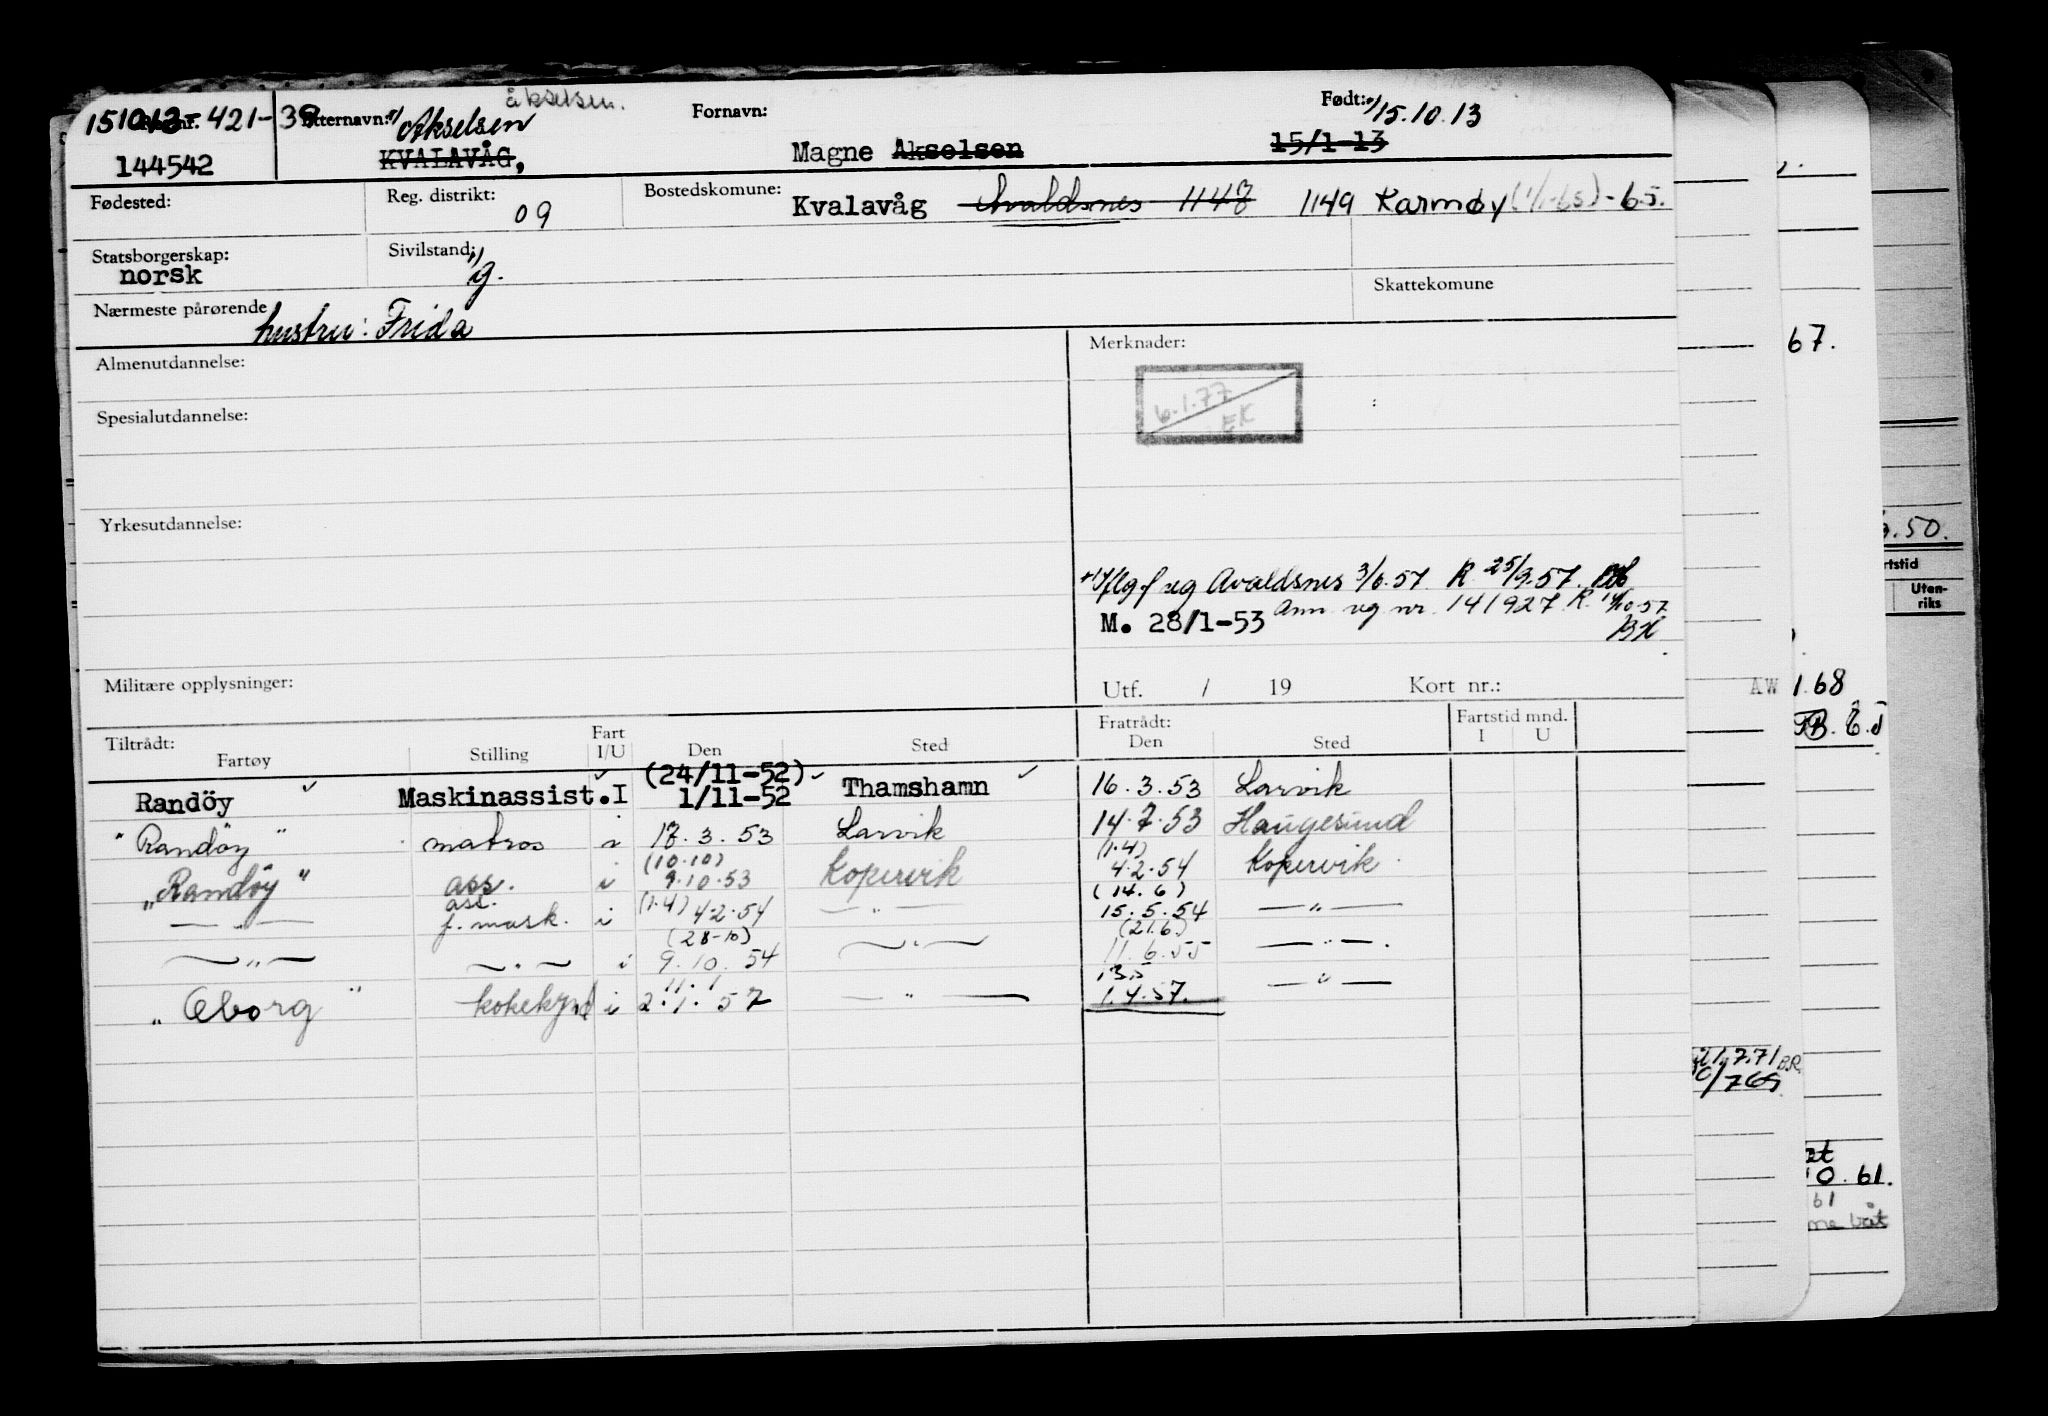 åkselsen.
151013-421-39 Etternavn: x/ Akselsen Fornavn: Født: x/ 15.10.13
144542 KVALAVÅG, Magne Akselsen 15/1-13
Fødested: Reg. distrikt: 09 Bostedskomune: Kvalavåg Avaldsnes 1147 1149 Karmøy (1/1-65)-65.
Statsborgerskap: norsk Sivilstand: x/ g.
Skattekomune
Nærmeste pårørende hustru: Frida
Almenutdannelse: Merknader:
6.1.77
EK
Spesialutdannelse:
Yrkesutdannelse:
x/ Iflg f reg Avaldsnes 3/6.57 R 25/9.57.
M. 28/1-53 Ann reg nr. 141927 R. 14/10-57
BH
Militære opplysninger: Utf. / 19 Kort nr.:
Tiltrådt: Fratrådt: Fartstid mnd.
Fartøy Stilling Fart I/U Den Sted Den Sted I U
Randöy Maskinassist. I (24/11-52) 1/11-52 Thamshamn 16.3.53 Larvik
"Randöy" matros i 17.3.53 Larvik 14.7.53 Haugesund
"Randöy" ass. i (10.10) 9.10.53 Kopervik (1.4) 4.2.54 Kopervik
— " — ass. f. mask. i (1.4) 4.2.54 — " — (14.6) 15.5.54 — " —
— " — — " — i (28-10) 9.10.54 — " — (21.6) 11.6.55 — " —
"Oborg" kokekynd i 11.1 2.1.57 — " — 13.5 1.4.57. — " —
67.
.50.
rtstid
Uten-
riks
AW 1.68
21.7.71 B.R.
/765
et
10.61.
61